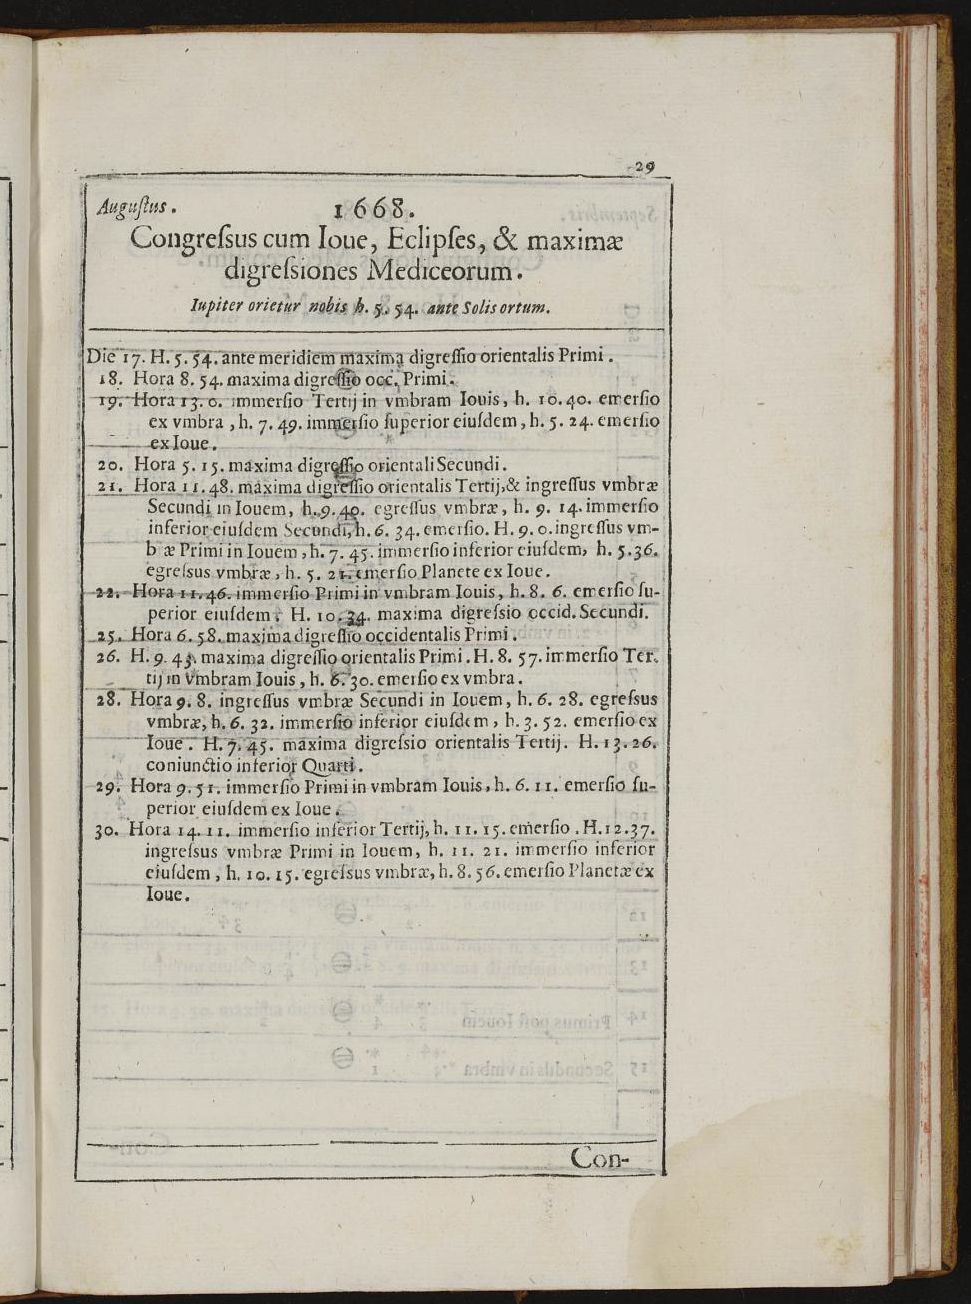 29
Auguſtus.
1668.
Congreſsus cum Ioue, Eclipſes, & maximæ
digreſsiones Mediceorum.
Iupiter orietur nobis h. 5. 54. ante Solis ortum.
Die 17. H. 5. 54. ante meridiem maxima digreſſio orientalis Primi.
18. Hora 8. 54. maxima digreſſio occ. Primi.
19. Hora 13. 0. immerſio Tertij in vmbram Iouis, h. 10. 40. emerſio
ex vmbra, h. 7. 49. immerſio ſuperior eiuſdem, h. 5. 24. emerſio
ex Ioue.
20. Hora 5. 15. maxima digreſſio orientali Secundi.
21. Hora 11. 48. maxima digreſſio orientalis Tertij, & ingreſſus vmbræ
Secundi in Iouem, h. 9. 40. egreſſus vmbræ, h. 9. 14. immerſio
inferior eiuſdem Secundi, h. 6. 34. emerſio. H. 9. 0. ingreſſus vm-
b æ Primi in Iouem, h. 7. 45. immerſio inferior eiuſdem, h. 5. 36.
egreſsus vmbræ, h. 5. 21. emerſio Planete ex Ioue.
22. Hora 11. 46. immerſio Primi in vmbram Iouis, h. 8. 6. emerſio ſu-
perior eiuſdem. H. 10. 34. maxima digreſsio occid. Secundi.
25. Hora 6. 58. maxima digreſſio occidentalis Primi.
26. H. 9. 43. maxima digreſſio orientalis Primi. H. 8. 57. immerſio Ter.
tij in vmbram Iouis, h. 6. 30. emerſio ex vmbra.
28. Hora 9. 8. ingreſſus vmbræ Secundi in Iouem, h. 6. 28. egreſsus
vmbræ, h. 6. 32. immerſio inferior eiuſdem, h. 3. 52. emerſio ex
Ioue. H. 7. 45. maxima digreſsio orientalis Tertij. H. 13. 26.
coniunctio inferior Quarti.
29. Hora 9. 51. immerſio Primi in vmbram Iouis, h. 6. 11. emerſio ſu-
perior eiuſdem ex Ioue.
30. Hora 14. 11. immerſio inferior Tertij, h. 11. 15. emerſio. H. 12. 37.
ingreſsus vmbræ Primi in Iouem, h. 11. 21. immerſio inferior
eiuſdem, h. 10. 15. egreſsus vmbræ, h. 8. 56. emerſio Planetæ ex
Ioue.
Con-